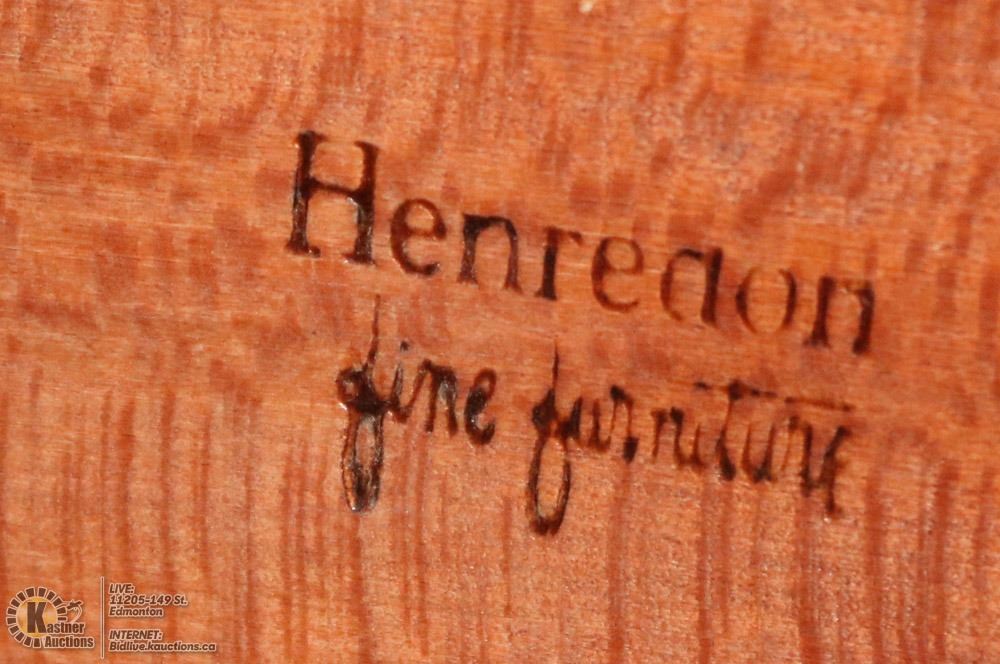 Henredon
fine furniture
Kastner
Auctions
LIVE:
11205-149 St.
Edmonton
INTERNET:
Bidlive.kauctions.ca